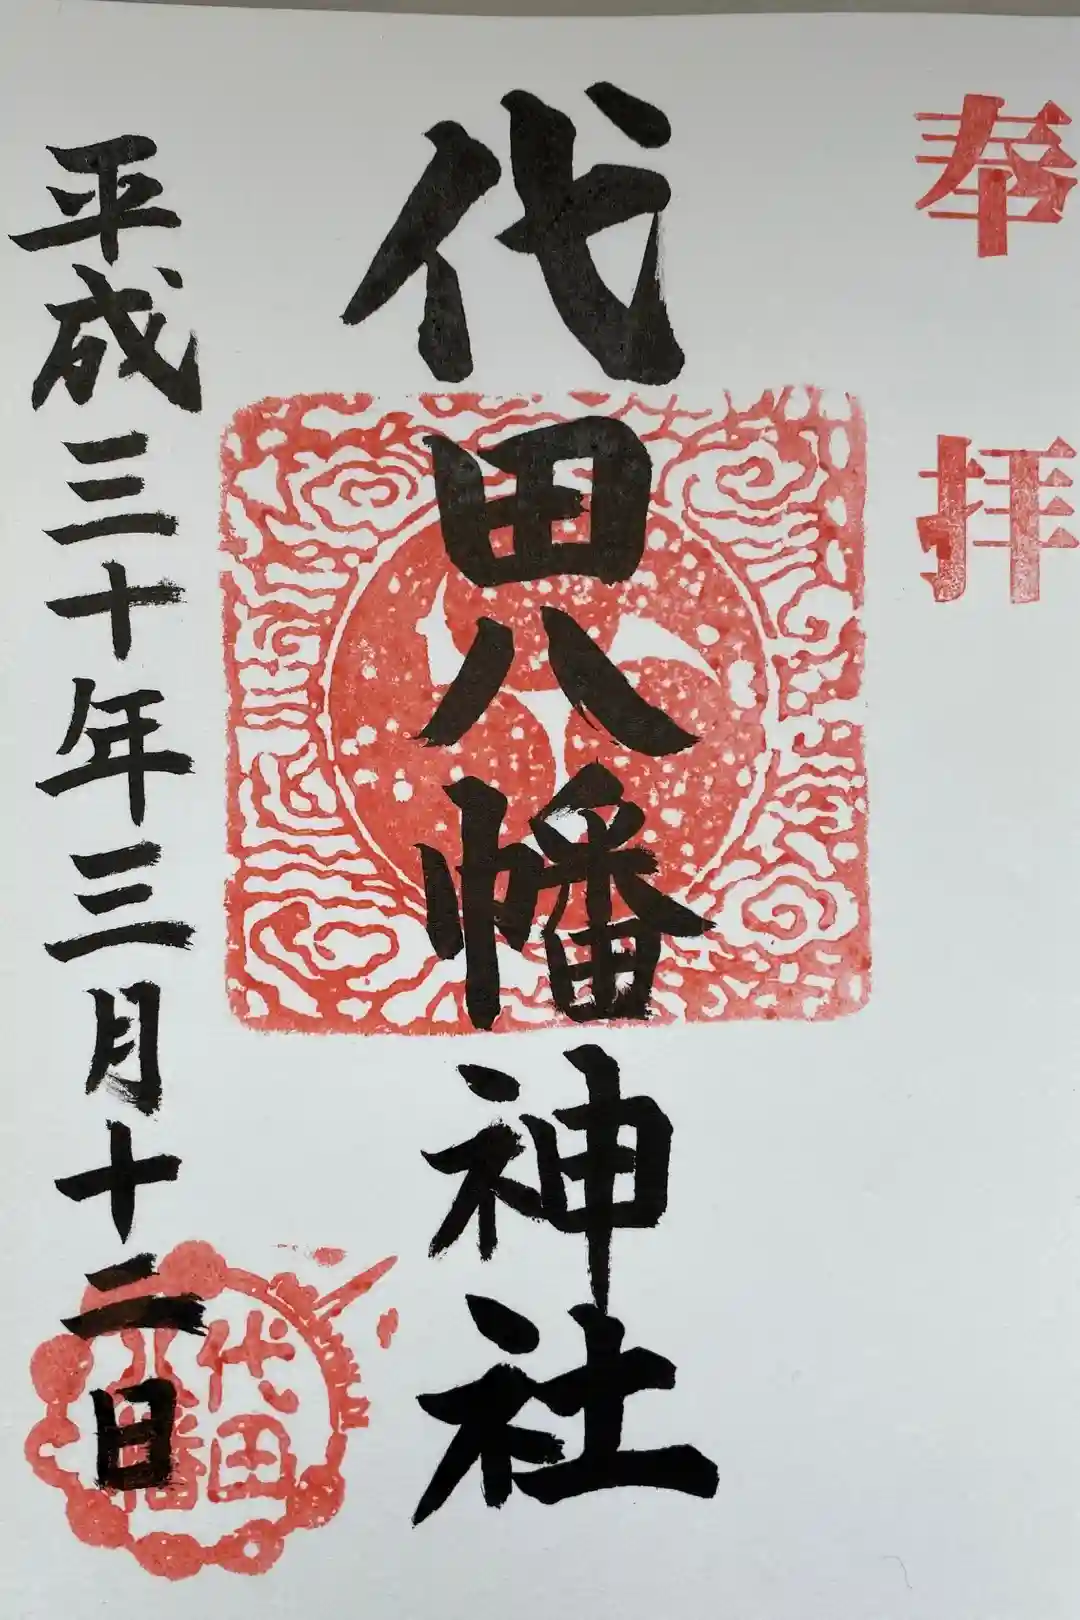 奉拝
代田八幡神社
平成三十年三月十二日
代田
八幡